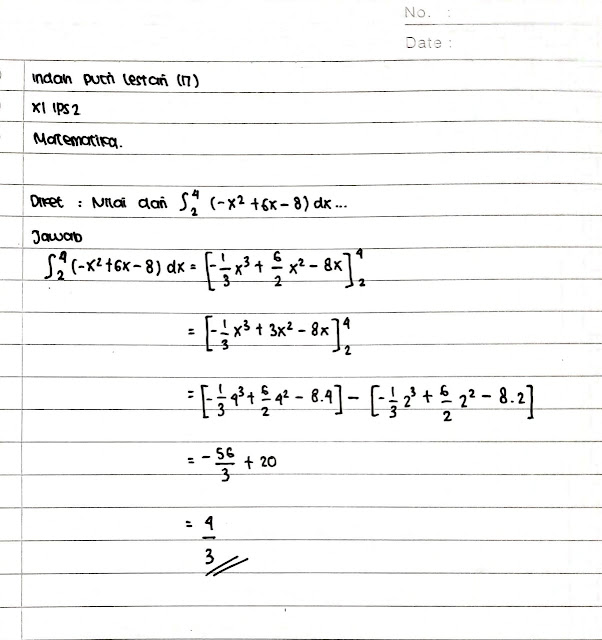 No. :
Date :
Indah Putri Lestari (17)
XI IPS 2
Matematika.
Diket : Nilai dari ∫₂⁴ (-x² + 6x - 8) dx...
Jawab
∫₂⁴ (-x² + 6x - 8) dx = [-1/3 x³ + 6/2 x² - 8x]₂⁴
= [-1/3 x³ + 3x² - 8x]₂⁴
= [-1/3 4³ + 6/2 4² - 8.4] - [-1/3 2³ + 6/2 2² - 8.2]
= - 56/3 + 20
= 4/3